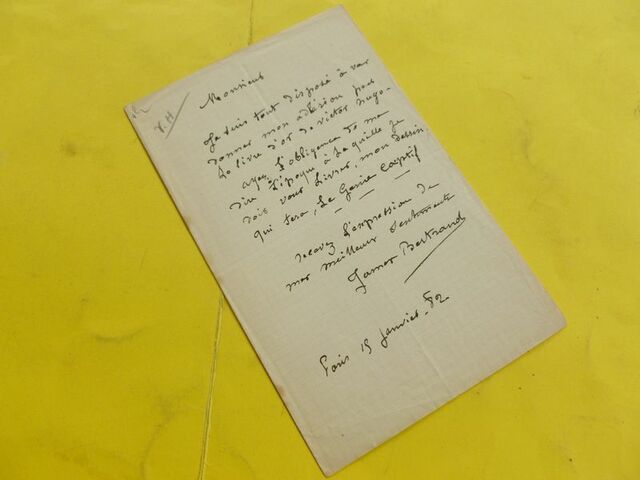 V.H
Monsieur
Je suis tout disposé à vous
donner mon adhésion pour
Le livre d'or de victor hugo.
ayez L'obligeance de me
dire L'époque à Laquelle je
dois vous Livrer, mon dessin,
qui sera, Le Génie Captif
recevez L'expression de
mes meilleurs sentiments
James Bertrand
Paris 15 janvier - 82